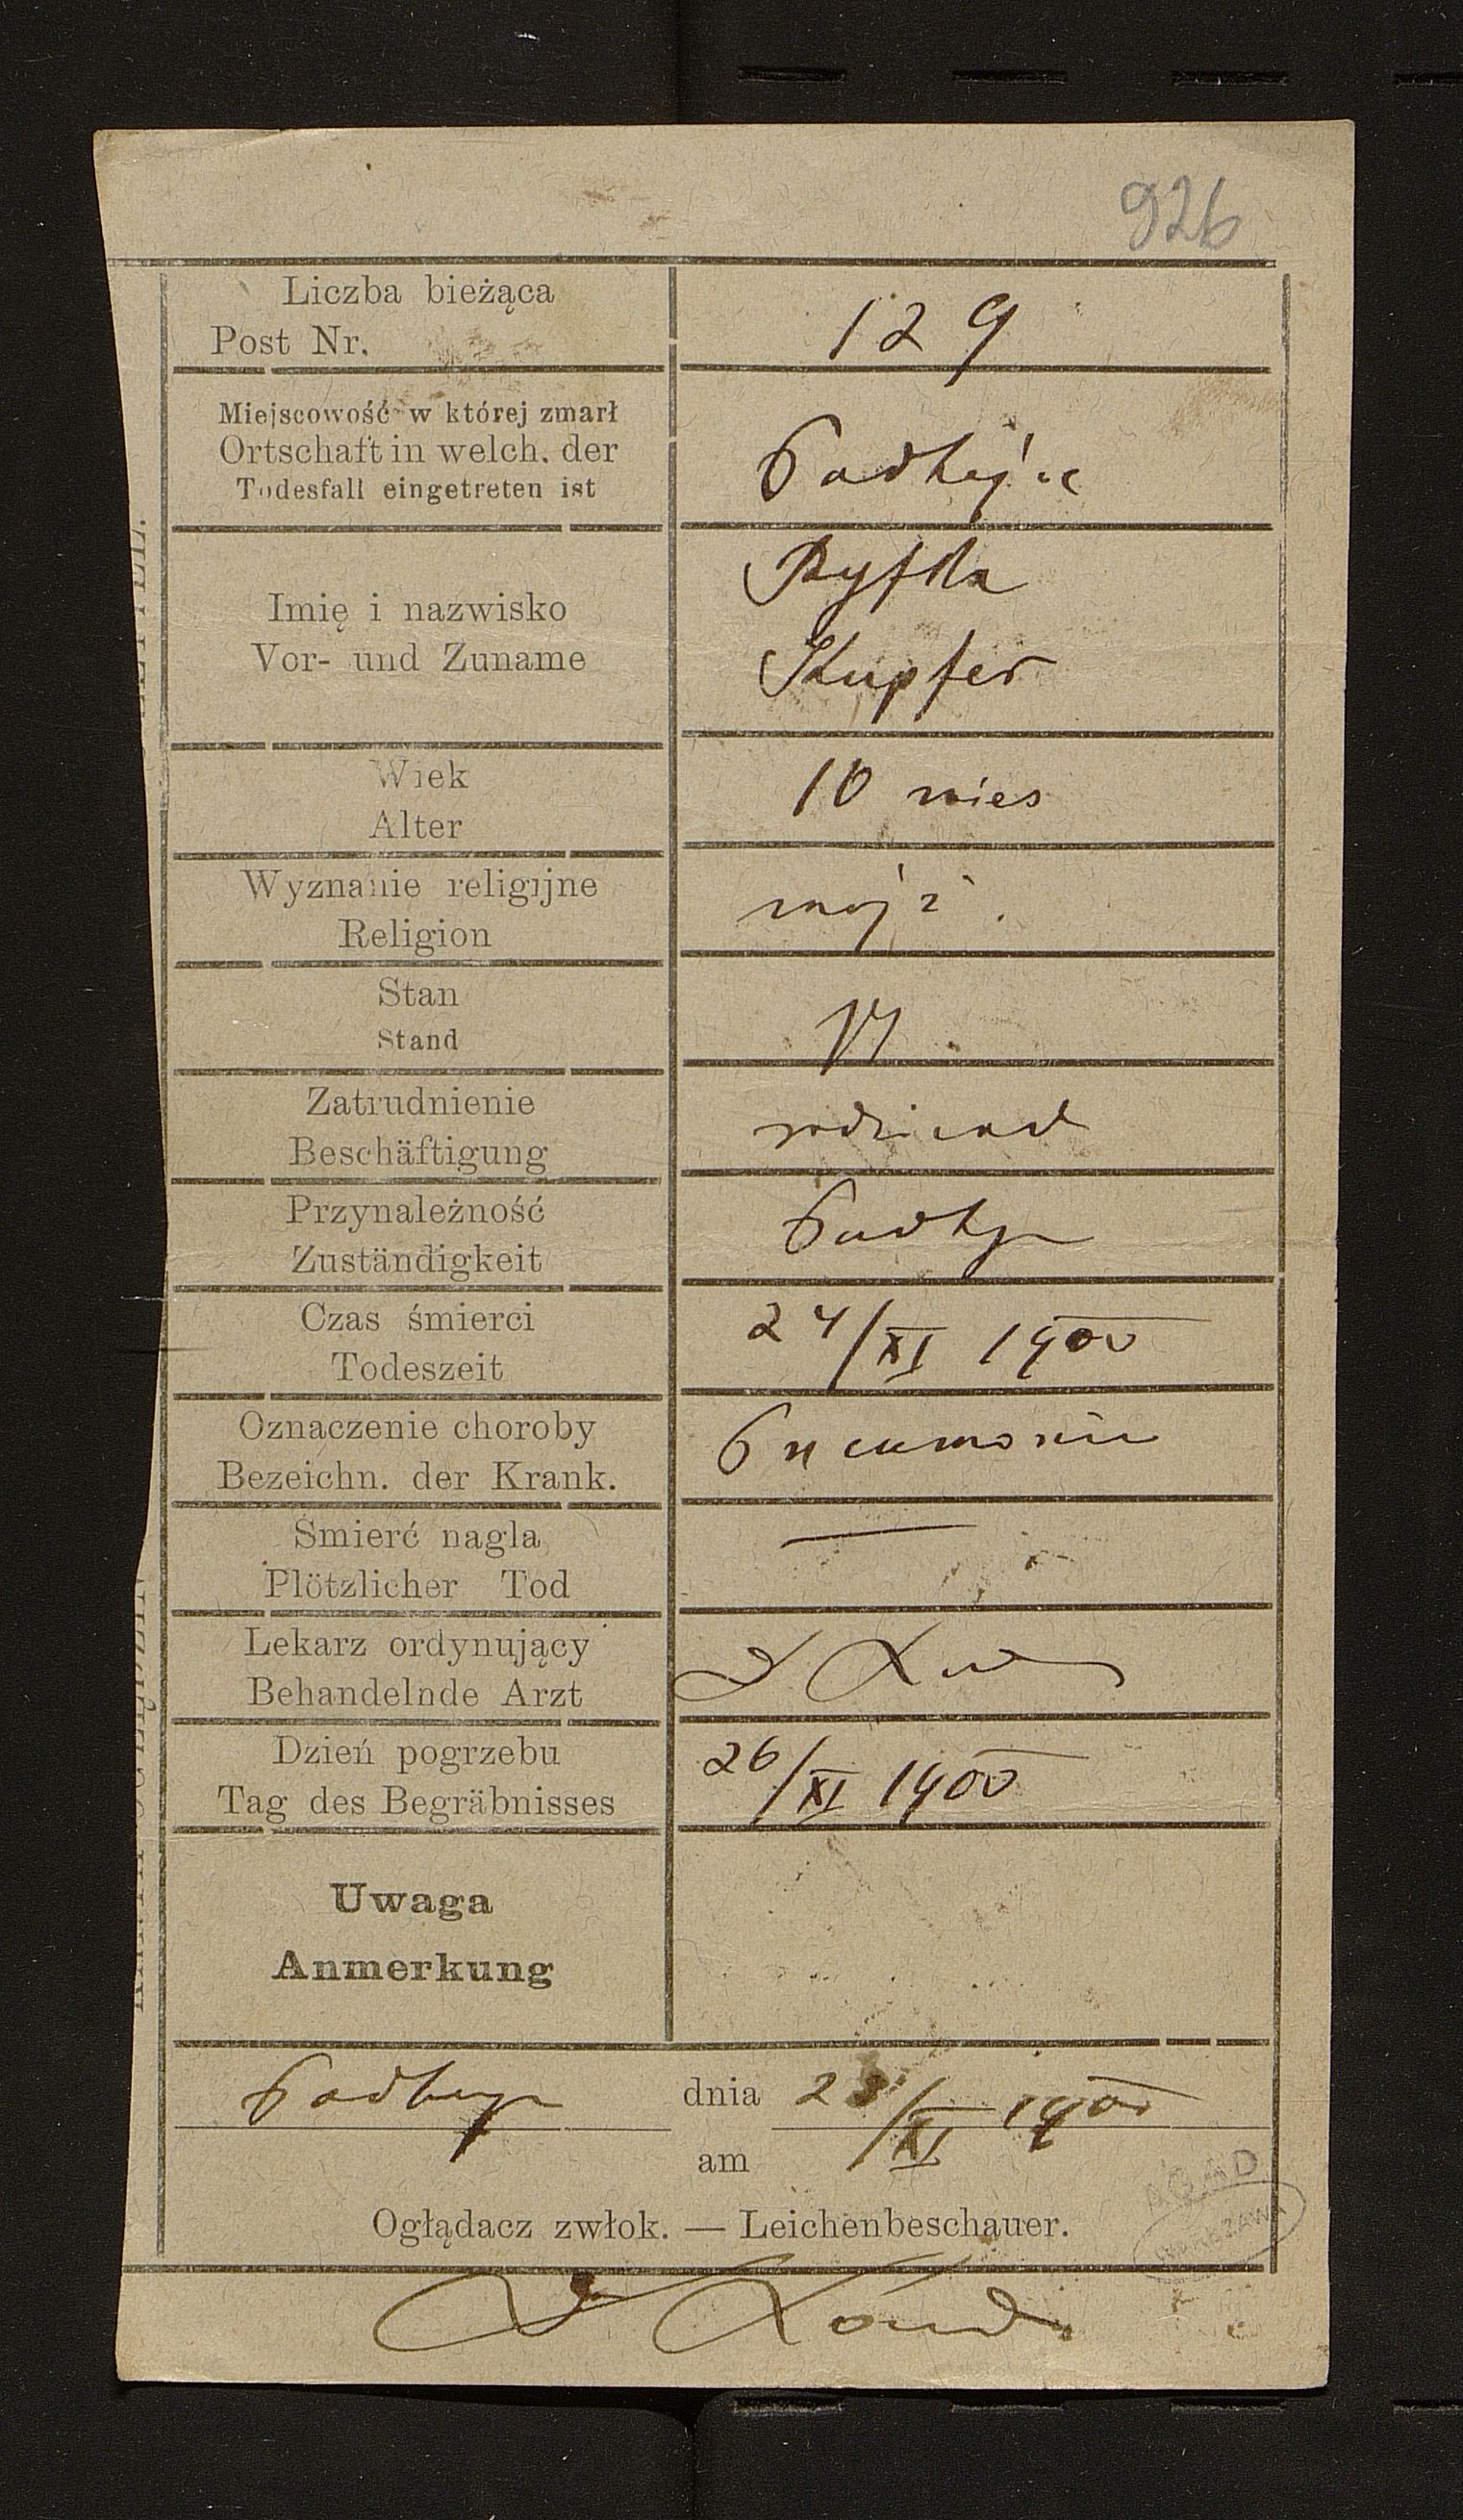 926
Liczba bieżąca
Post Nr.
129
Miejscowość w której zmarł
Ortschaft in welch. der
Todesfall eingetreten ist
Podhajce
Imię i nazwisko
Vor- und Zuname
Ryfka
Kupfer
Wiek
Alter
10 mies
Wyznanie religijne
Religion
mojż.
Stan
Stand
Zatrudnienie
Beschäftigung
Przynależność
Zuständigkeit
Podhj
Czas śmierci
Todeszeit
24/XI 1900
Oznaczenie choroby
Bezeichn. der Krank.
Pneumonia
Śmierć nagla
Plötzlicher Tod
—
Lekarz ordynujący
Behandelnde Arzt
Dzień pogrzebu
Tag des Begräbnisses
26/XI 1900
Uwaga
Anmerkung
Podhaj dnia /XI 1900
am
Oglądacz zwłok. — Leichenbeschauer.
AGAD
WARSZAWA